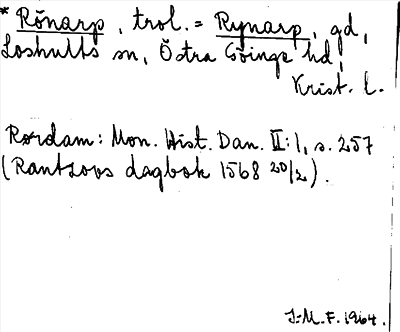 * Rönarp, trol. = Rynarp, gd,
Loshults sn, Östra Göinge hd,
Krist. l.
Rørdam: Mon. Hist. Dan. II:1, s. 257
(Rantzovs dagbok 1568 20/2).
I.M.F. 1964.